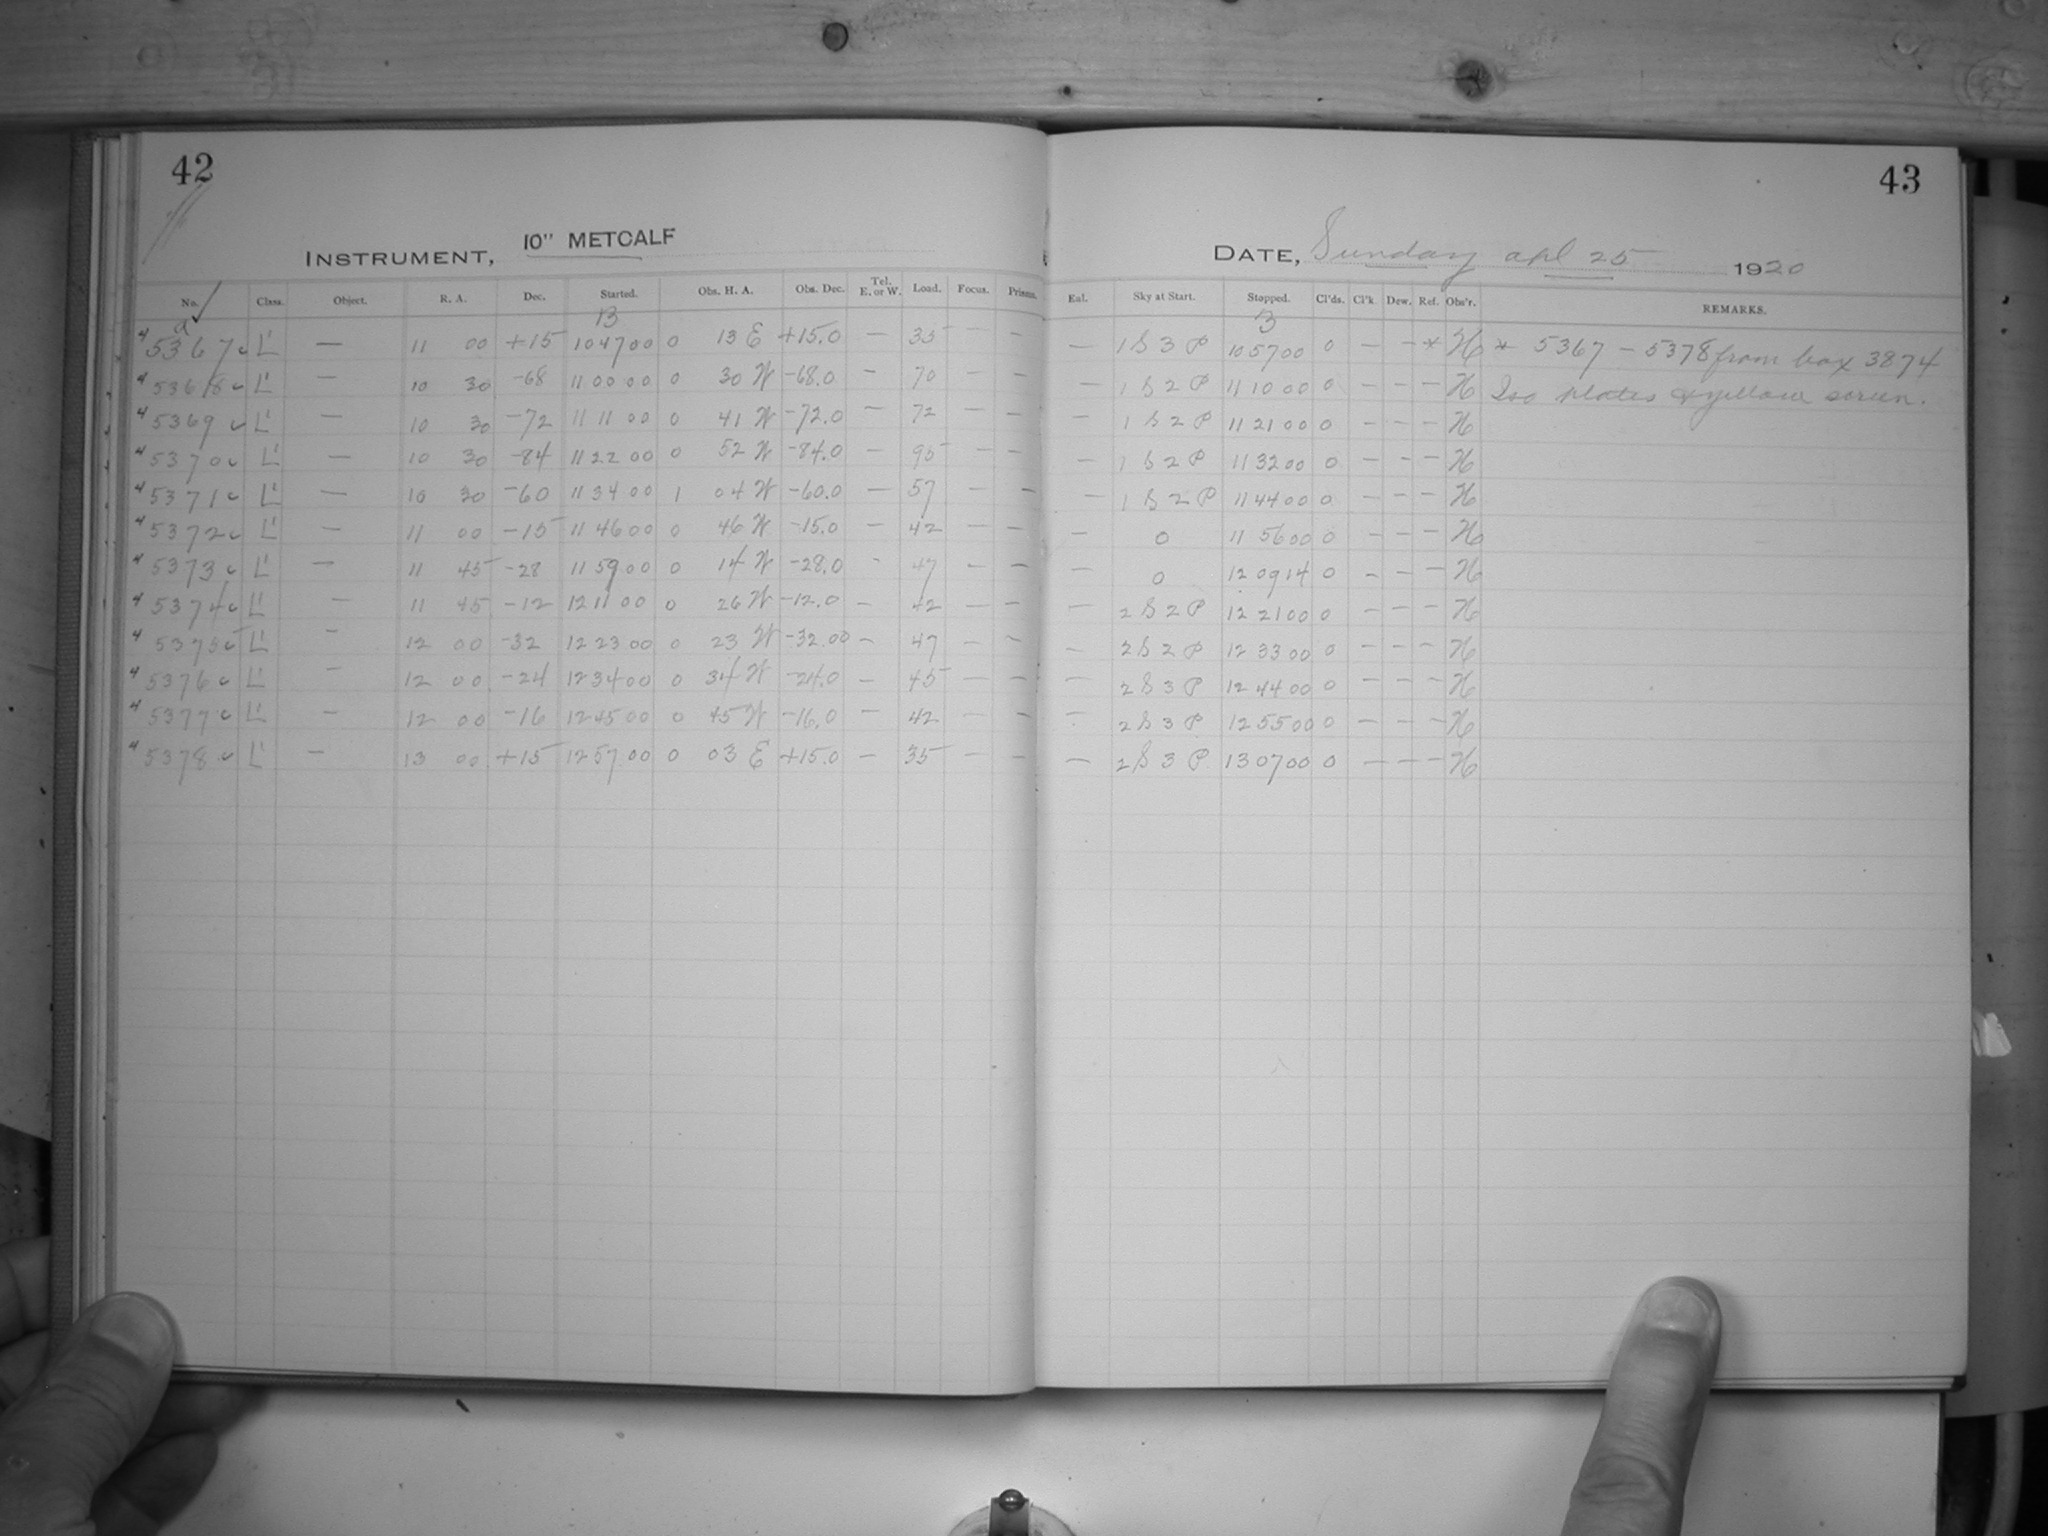 42
INSTRUMENT, 10" METCALF
No. Class. Object. R. A. Dec. Started. Obs. H. A. Obs. Dec. Tel. E. or W. Load. Focus. Prisms.
a B
5367 L' — 11 00 +15 10 47 00 0 13 E +15.0 — 35 — —
5368 L' — 10 30 -68 11 00 00 0 30 W -68.0 — 70 — —
5369 L' — 10 30 -72 11 11 00 0 41 W -72.0 — 72 — —
5370 L' — 10 30 -84 11 22 00 0 52 W -84.0 — 95 — —
5371 L' — 10 30 -60 11 34 00 1 04 W -60.0 — 57 — —
5372 L' — 11 00 -15 11 46 00 0 46 W -15.0 — 42 — —
5373 L' — 11 45 -28 11 59 00 0 14 W -28.0 - 47 - —
5374 L' — 11 45 -12 12 11 00 0 26 W -12.0 — 42 — —
5375 L' — 12 00 -32 12 23 00 0 23 W -32.00 — 47 — —
5376 L' — 12 00 -24 12 34 00 0 34 W -24.0 — 45 — —
5377 L' — 12 00 -16 12 45 00 0 45 W -16.0 — 42 — —
5378 L' — 13 00 +15 12 57 00 0 03 E +15.0 — 35 — —
43
DATE, Sunday apl 25 1920
Eal. Sky at Start. Stopped. Cl'ds. Cl'k. Dew. Ref. Obs'r. REMARKS.
B
— 1 S 3 P 10 57 00 0 — — * H * 5367 - 5378 from box 3874
— 1 S 2 P 11 10 00 0 — — — H Iso plates & yellow screen.
— 1 S 2 P 11 21 00 0 — — — H
— 1 S 2 P 11 32 00 0 — — — H
— 1 S 2 P 11 44 00 0 — — — H
— 0 11 56 00 0 — — — H
— 0 12 09 14 0 — — — H
— 2 S 2 P 12 21 00 0 — — — H
— 2 S 2 P 12 33 00 0 — — — H
— 2 S 3 P 12 44 00 0 — — — H
— 2 S 3 P 12 55 00 0 — — — H
— 2 S 3 P 13 07 00 0 — — — H